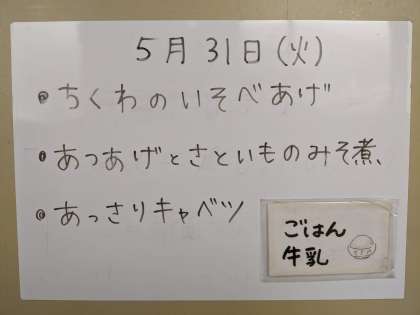 5月31日(火)
・ちくわのいそべあげ
・あつあげとさといものみそ煮
・あっさりキャベツ
ごはん
牛乳